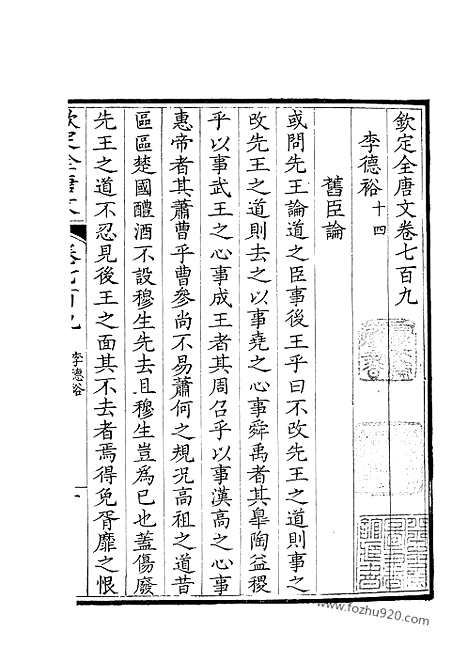 欽定全唐文卷七百九
李德裕十四
舊臣論
或問先王論道之臣事後王乎曰不改先王之道則事之
改先王之道則去之以事堯之心事舜禹者其皐陶益稷
乎以事武王之心事成王者其周召乎以事漢高之心事
惠帝者其蕭曹乎曹參尚不易蕭何之規況高祖之道昔
區區楚國醴酒不設穆生先去且穆生豈為已也蓋傷廢
先王之道不忍見後王之面其不去者焉得免胥靡之恨
欽定全唐文
卷七百九
李德裕
一
www.fozhu920.com